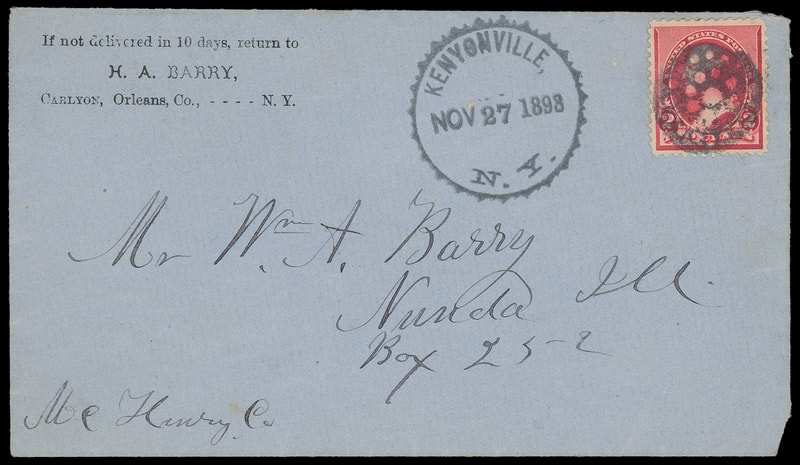 If not delivered in 10 days, return to
H. A. BARRY,
CARLYON, Orleans, Co., - - - - N. Y.
KENYONVILLE,
NOV 27 1893
N. Y.
UNITED STATES
2 2
Mr Wm A. Barry
Nunda Ill.
Box 252
Mc Henry Co